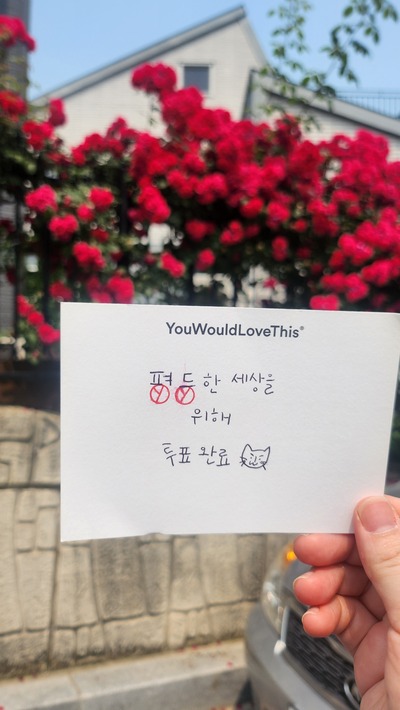 YouWouldLoveThis®
평등한 세상을
위해
투표 완료